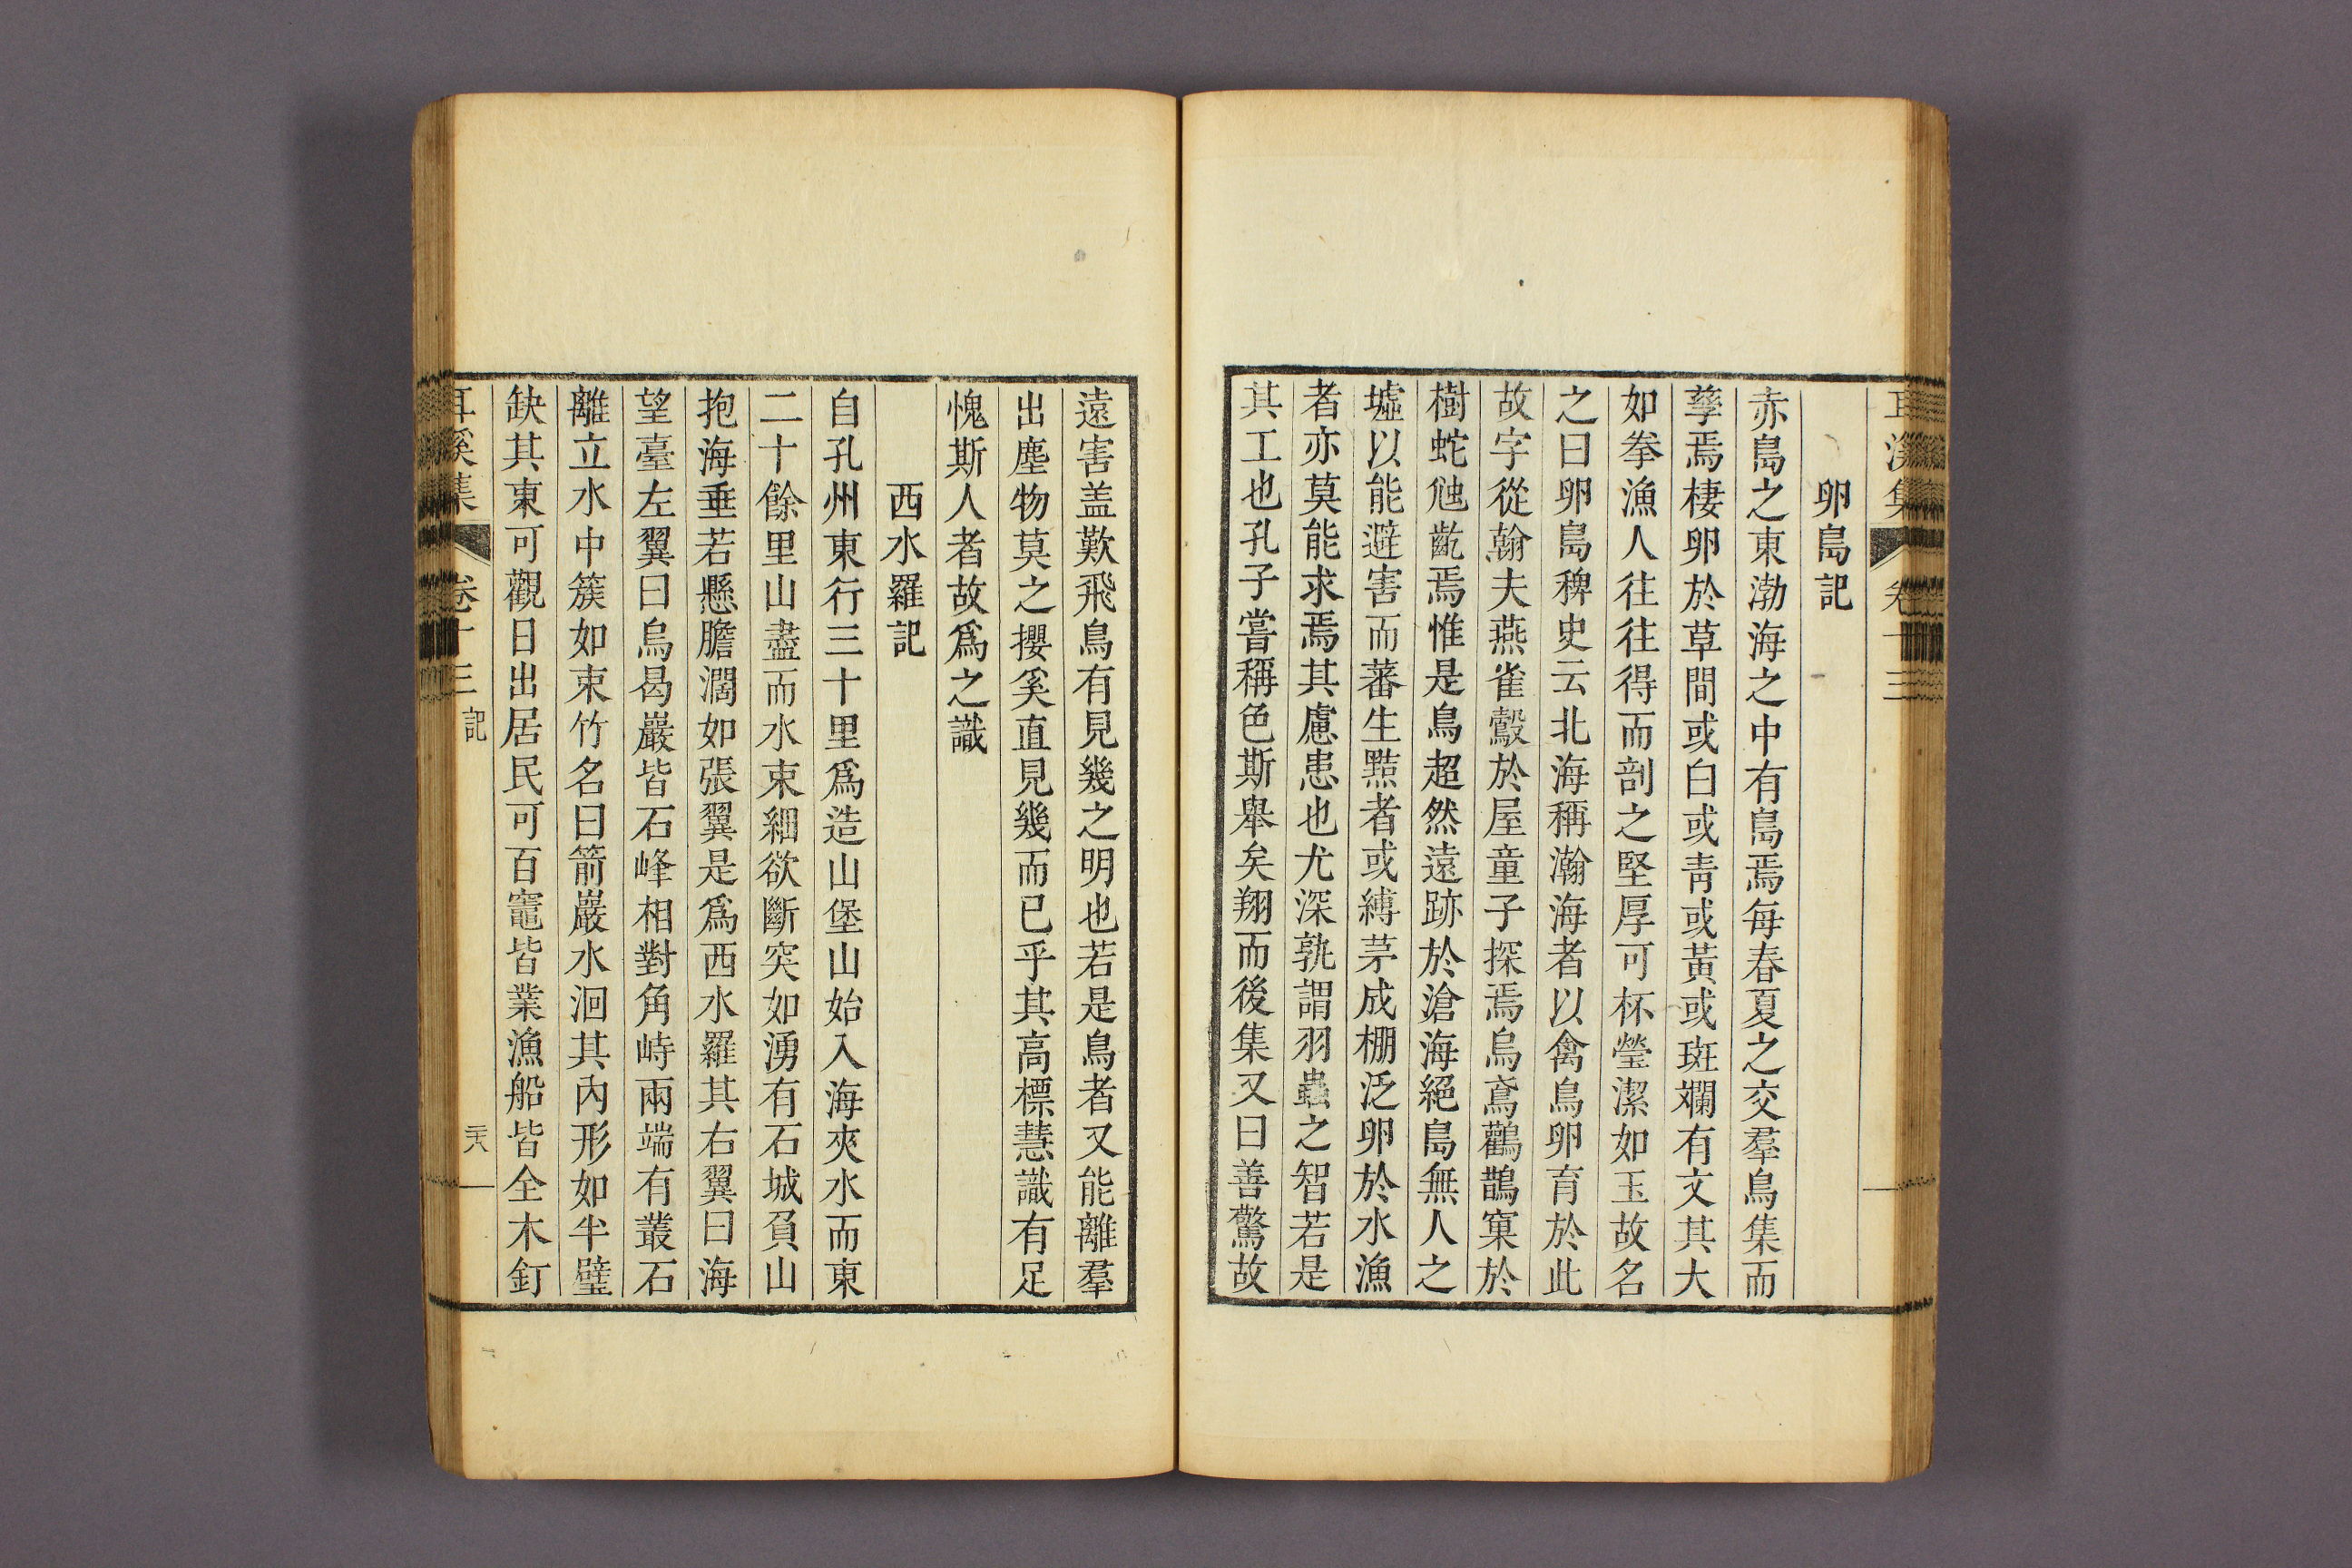 耳溪集 卷十三
卵島記
赤島之東渤海之中有島焉每春夏之交羣鳥集而
孳焉棲卵於草間或白或靑或黃或斑斕有文其大
如拳漁人往往得而剖之堅厚可杯瑩潔如玉故名
之曰卵島稗史云北海稱瀚海者以禽鳥卵育於此
故字從翰夫燕雀鷇於屋童子探焉烏鳶鸛鵲窠於
樹蛇虺齕焉惟是鳥超然遠跡於滄海絕島無人之
墟以能避害而蕃生黠者或縛茅成棚泛卵於水漁
者亦莫能求焉其慮患也尤深孰謂羽蟲之智若是
其工也孔子嘗稱色斯舉矣翔而後集又曰善驚故
遠害盖歎飛鳥有見幾之明也若是鳥者又能離羣
出塵物莫之攖奚直見幾而已乎其高標慧識有足
愧斯人者故爲之識
西水羅記
自孔州東行三十里爲造山堡山始入海夾水而東
二十餘里山盡而水束細欲斷突如湧有石城負山
抱海垂若懸膽濶如張翼是爲西水羅其右翼曰海
望臺左翼曰烏曷巖皆石峰相對角峙兩端有叢石
離立水中簇如束竹名曰箭巖水洄其內形如半璧
缺其東可觀日出居民可百竈皆業漁船皆全木釘
耳溪集 卷十三 記 三十八